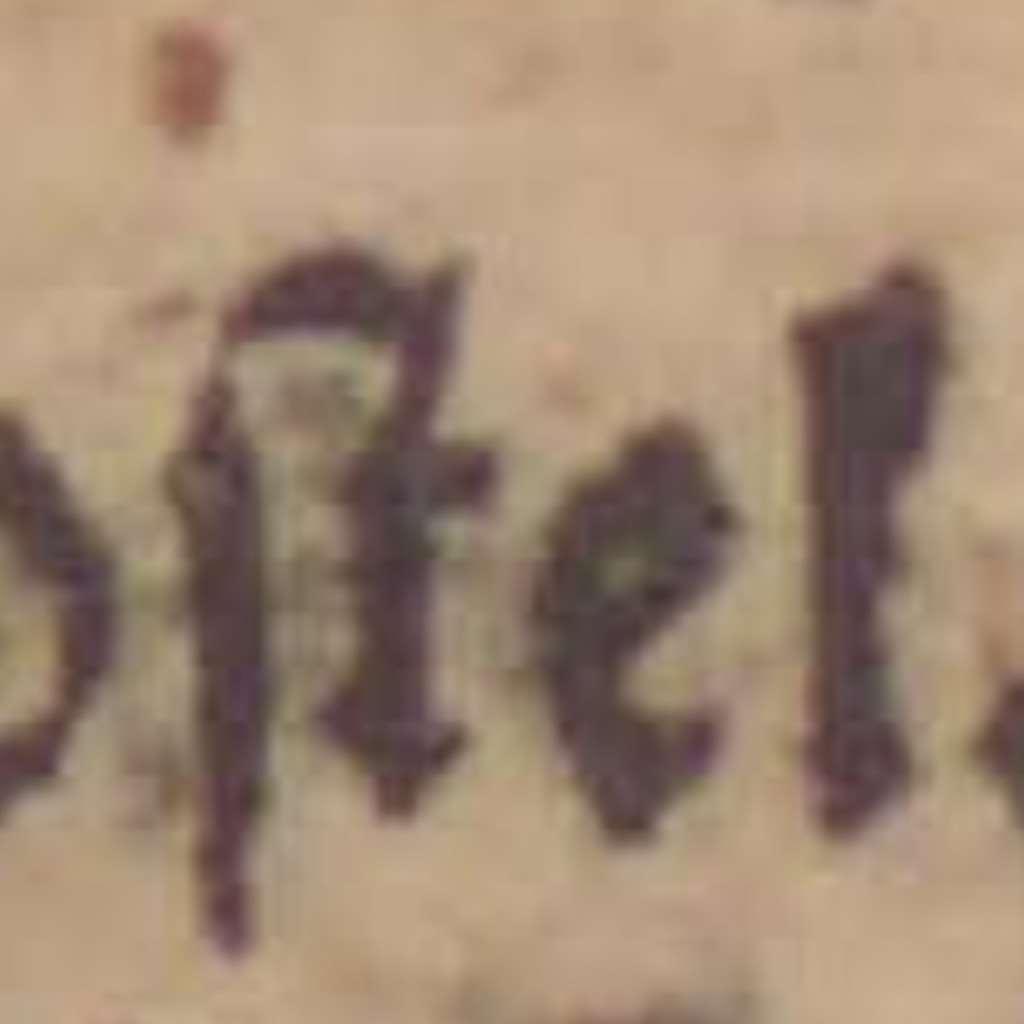 oſtel